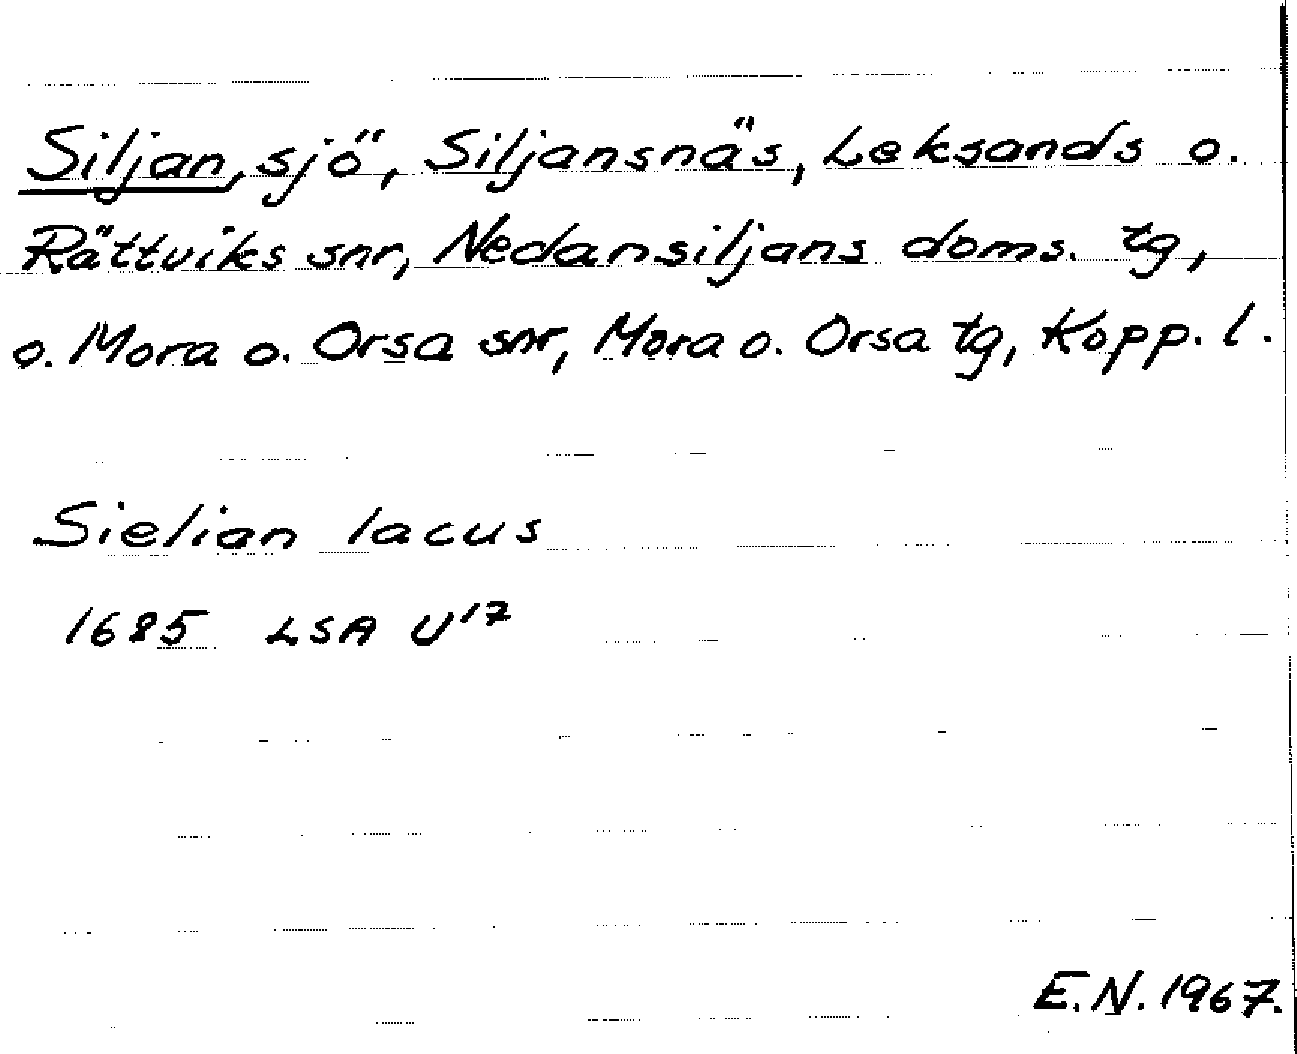 Siljan, sjö, Siljansnäs, Leksands o.
Rättviks snr, Nedansiljans doms. tg,
o. Mora o. Orsa snr, Mora o. Orsa tg, Kopp. l.
Sielian lacus
1685 LSA U17
E.N. 1967.